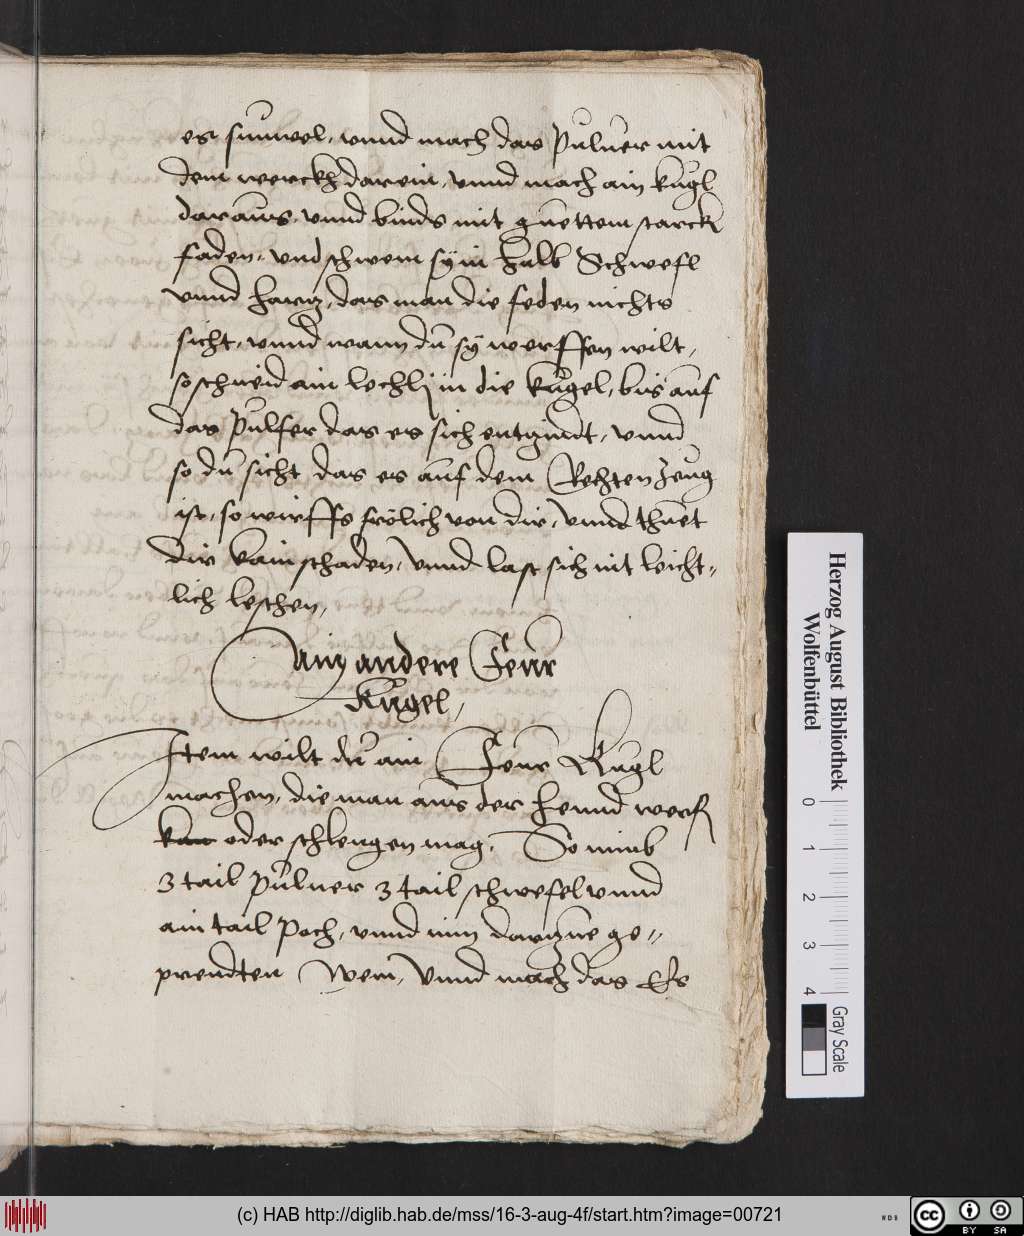 es sinwel, unnd mach das Pulver mit
dem werckh darein, unnd mach ain kugl
daraus, unnd binds mit guettem starck
faden, und schwem sÿ in halb Schwefl
unnd hartz, das man die feden nichts
sicht, unnd wann du sÿ werffen wilt,
so schneid ain lechli in die kugel, bis auf
das Pulfer das es sich entzindt, unnd
so du sicht das es auf dem Rechten Zeug
ist, so wirffs frölich von dir, unnd thuet
dir kain schaden, Unnd last sich nit leicht-
lich leschen,
Ain andere Feur
Kugel,
Item wilt du ain Feur Kugl
machen, die man aus der hennd werf
kan oder schlengen mag, So nimb
3 tail pulver 3 tail schwefel unnd
ain tail Pech, unnd nim darzue ge-
prendten Wein, Unnd mach das Es
Herzog August Bibliothek
Wolfenbüttel
0 1 2 3 4
Gray Scale
(c) HAB http://diglib.hab.de/mss/16-3-aug-4f/start.htm?image=00721
WDB
cc BY SA